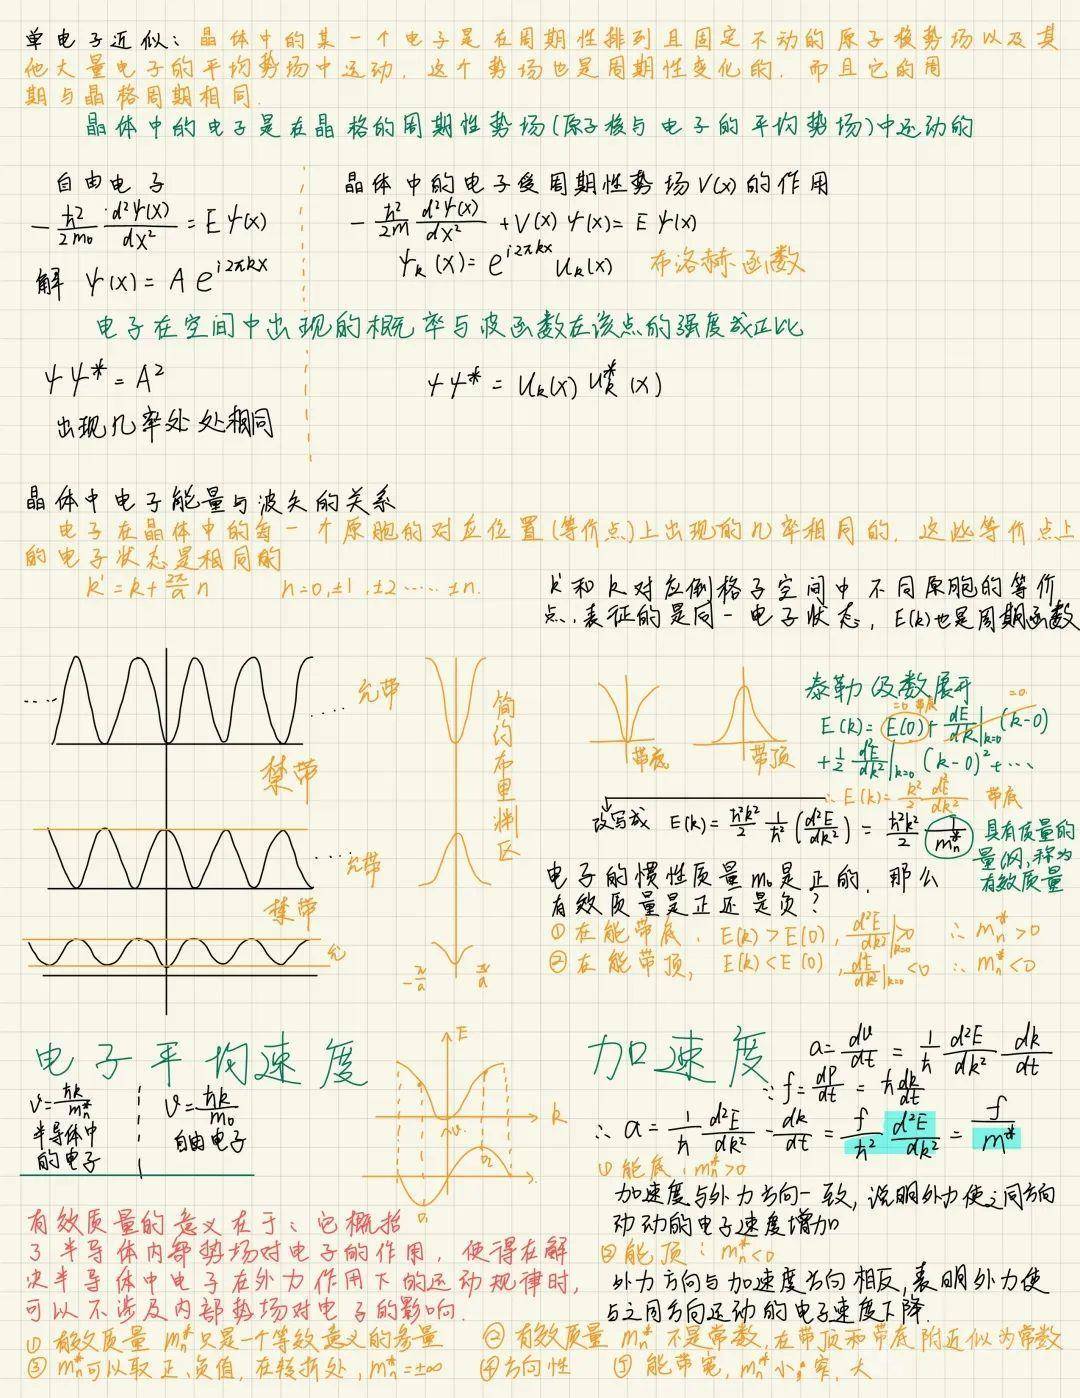 单电子近似：晶体中的某一个电子是在周期性排列且固定不动的原子核势场以及其
他大量电子的平均势场中运动，这个势场也是周期性变化的，而且它的周
期与晶格周期相同.
晶体中的电子是在晶格的周期性势场(原子核与电子的平均势场)中运动的
自由电子
-ħ²/2m₀ · d²ψ(x)/dx² = Eψ(x)
解 ψ(x) = A e^{i2πkx}
晶体中的电子受周期性势场V(x)的作用
-ħ²/2m d²ψ(x)/dx² + V(x)ψ(x) = Eψ(x)
ψₖ(x) = e^{i2πkx} uₖ(x) 布洛赫函数
电子在空间中出现的概率与波函数在该点的强度成正比
ψψ* = A²
出现几率处处相同
ψψ* = uₖ(x) uₖ*(x)
晶体中电子能量与波矢的关系
电子在晶体中的每一个原胞的对应位置(等价点)上出现的几率相同的，这些等价点上
的电子状态是相同的
k' = k + 2π/a n n=0,±1,±2……±n.
k'和k对应倒格子空间中不同原胞的等价
点，表征的是同一电子状态，E(k)也是周期函数
允带
禁带
允带
禁带
允
简约布里渊区
-π/a π/a
带底
带顶
泰勒级数展开
=0 带底 =0
E(k) = E(0) + dE/dk|k=0 (k-0)
+ 1/2 d²E/dk²|k=0 (k-0)² + …
∴ E(k) = k²/2 d²E/dk² 带底
改写成 E(k) = ħ²k²/2 1/ħ² (d²E/dk²) = ħ²k²/2 1/mₙ*
具有质量的
量纲，称为
有效质量
电子的惯性质量m₀是正的，那么
有效质量是正还是负？
① 在能带底，E(k)>E(0), d²E/dk²|k=0 >0 ∴ mₙ*>0
② 在能带顶，E(k)<E(0), d²E/dk²|k=0 <0 ∴ mₙ*<0
电子平均速度
v = ħk/mₙ*
半导体中
的电子
v = ħk/m₀
自由电子
E
k
v
有效质量的意义在于：它概括
了半导体内部势场对电子的作用，使得在解
决半导体中电子在外力作用下的运动规律时，
可以不涉及内部势场对电子的影响.
加速度
a = dv/dt = 1/ħ d²E/dk² dk/dt
∵ f = dp/dt = ħ dk/dt
∴ a = 1/ħ d²E/dk² · dk/dt = f/ħ² d²E/dk² = f/m*
① 能底：mₙ*>0
加速度与外力方向一致，说明外力使之同方向
动动的电子速度增加
② 能顶：mₙ*<0
外力方向与加速度方向相反，表明外力使
与之同方向运动的电子速度下降.
① 有效质量mₙ*只是一个等效意义的参量 ② 有效质量mₙ*不是常数，在带顶和带底附近似为常数
③ mₙ*可以取正、负值，在转折处，mₙ*=±∞ ④ 方向性 ⑤ 能带宽，mₙ*小；窄，大